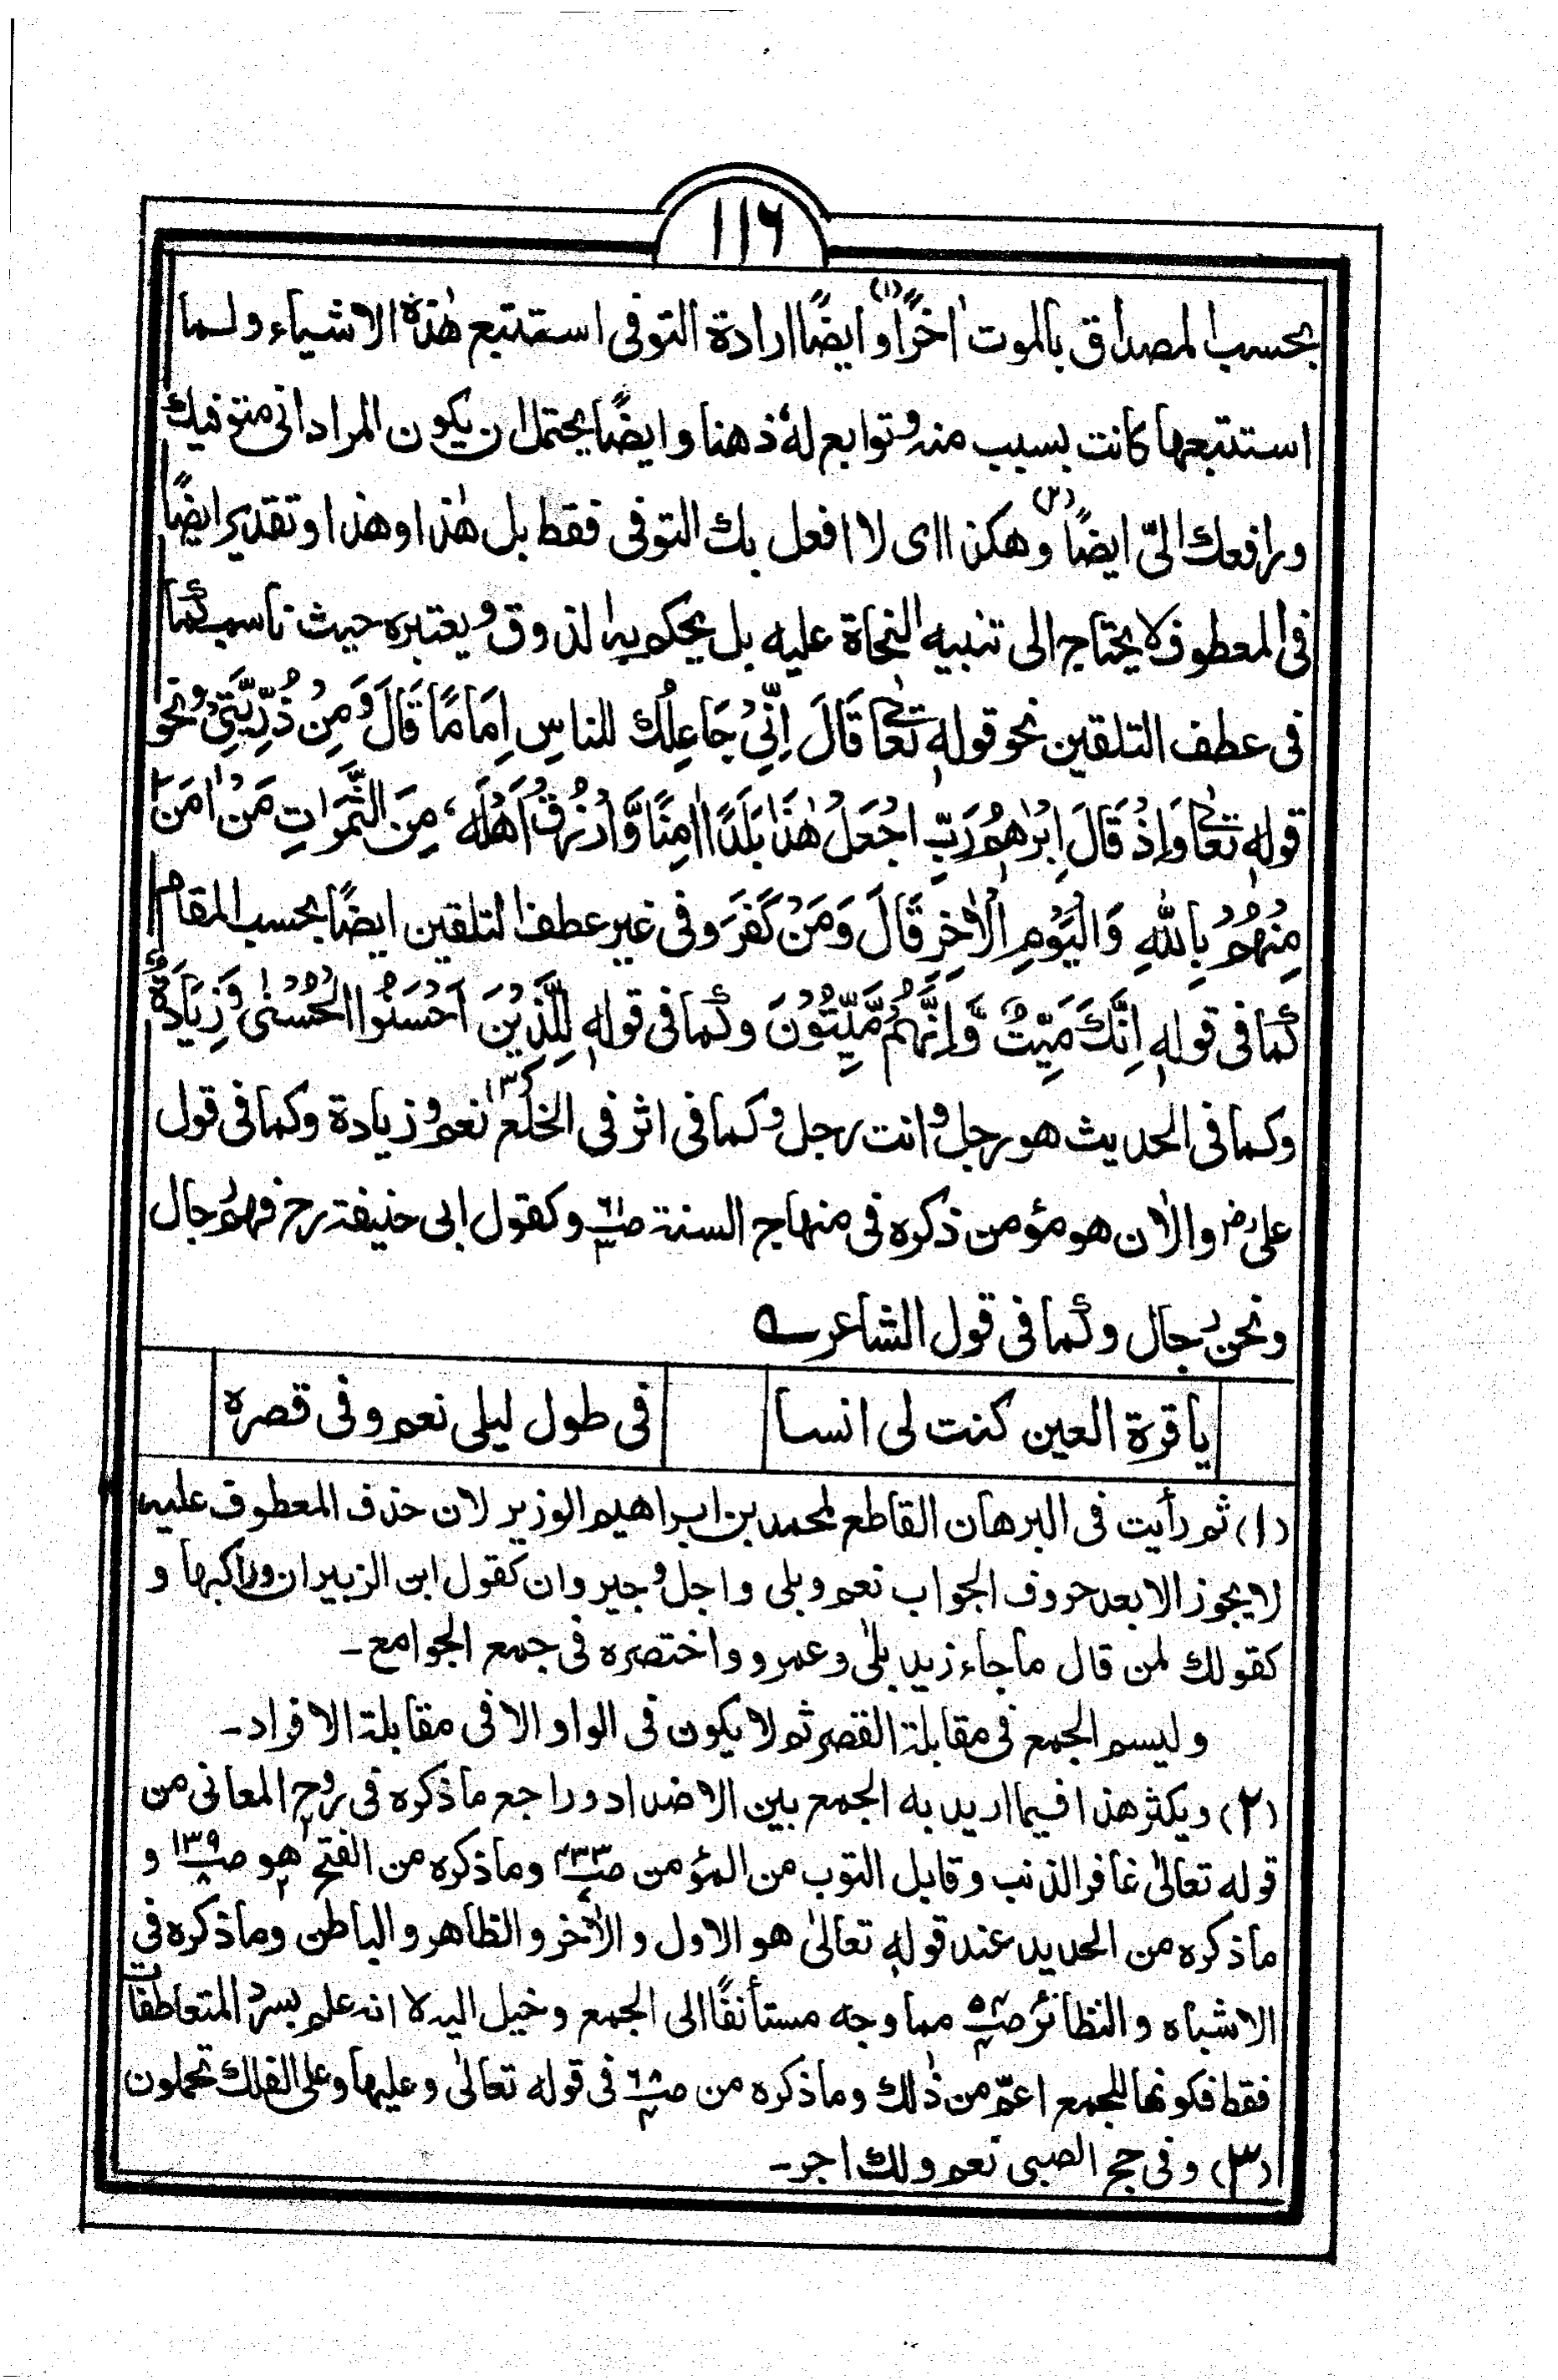 ١١٦
بحسب المصداق بالموت اٰخرًا (١) وايضًا ارادة التوفى استتبع هٰذه الاشياء ولما
استتبعها كانت بسبب منه وتوابع لهٗ ذهنا وايضًا يحتمل ان يكون المراد انى متوفيك
ورافعك الىّ ايضًا (٢) وهكذا اى لا افعل بك التوفى فقط بل هٰذا وهذا وتقدير ايضًا
فى المعطوف لا يحتاج الى تنبيه النحاة عليه بل يحكم به الذوق ويعتبره حيث ناسب كما
فى عطف التلقين نحو قولهٖ تعالٰى قَالَ اِنِّيْ جَاعِلُكَ للناسِ اِمَامًا قَالَ وَمِنْ ذُرِّيَّتِيْ ونحو
قولهٖ تعالٰى وَاِذْ قَالَ اِبْرٰهٖمُ رَبِّ اجْعَلْ هٰذَا بَلَدًا اٰمِنًا وَّارْزُقْ اَهْلَهٗ مِنَ الثَّمَرَاتِ مَنْ اٰمَنَ
مِنْهُمْ بِاللّٰهِ وَالْيَوْمِ الْاٰخِرِ قَالَ وَمَنْ كَفَرَ وفى غير عطف التلقين ايضًا بحسب المقام
كما فى قولهٖ اِنَّكَ مَيِّتٌ وَّاِنَّهُمْ مَّيِّتُوْنَ وكما فى قولهٖ لِلَّذِيْنَ اَحْسَنُوا الْحُسْنٰى وَزِيَادَةٌ
وكما فى الحديث هو رجل وانت رجل وكما فى اثر فى الخلع (٣) نعم وزيادة وكما فى قول
علىؓ والاٰن هو مؤمن ذكره فى منهاج السنة وكقول ابى حنيفةؒ فهم رجال
ونحن رجال وكما فى قول الشاعر ؎
ياقرة العين كنت لى انسا فى طول ليلى نعم وفى قصره
(١) ثم رأيت فى البرهان القاطع لمحمد بن ابراهيم الوزير لان حذف المعطوف عليه
لا يجوز الا بعد حروف الجواب نعم وبلى واجل وجير وان كقول ابن الزبير ان وراكبها و
كقولك لمن قال ماجاء زيد بلٰى وعمرو واختصره فى جمع الجوامع۔
وليسم الجمع فى مقابلة القصر ثم لا يكون فى الواو الا فى مقابلة الافراد۔
(٢) ويكثر هذا فيما اريد به الجمع بين الاضداد وراجع ما ذكره فى روح المعانى من
قوله تعالٰى غافر الذنب وقابل التوب من المؤمن وما ذكره من الفتح هو ص١٣٩ و
ما ذكره من الحديد عند قولهٖ تعالٰى هو الاول والاٰخر والظاهر والباطن وما ذكره فى
الاشباه والنظائر مما وجه مستأنفًا الى الجمع وخيل اليه لا انه علم بسرد المتعاطفات
فقط فكونها للجمع اعمّ من ذٰلك وما ذكره من فى قوله تعالٰى وعليها وعلى الفلك تحملون
(٣) وفى حج الصبى نعم ولك اجر۔